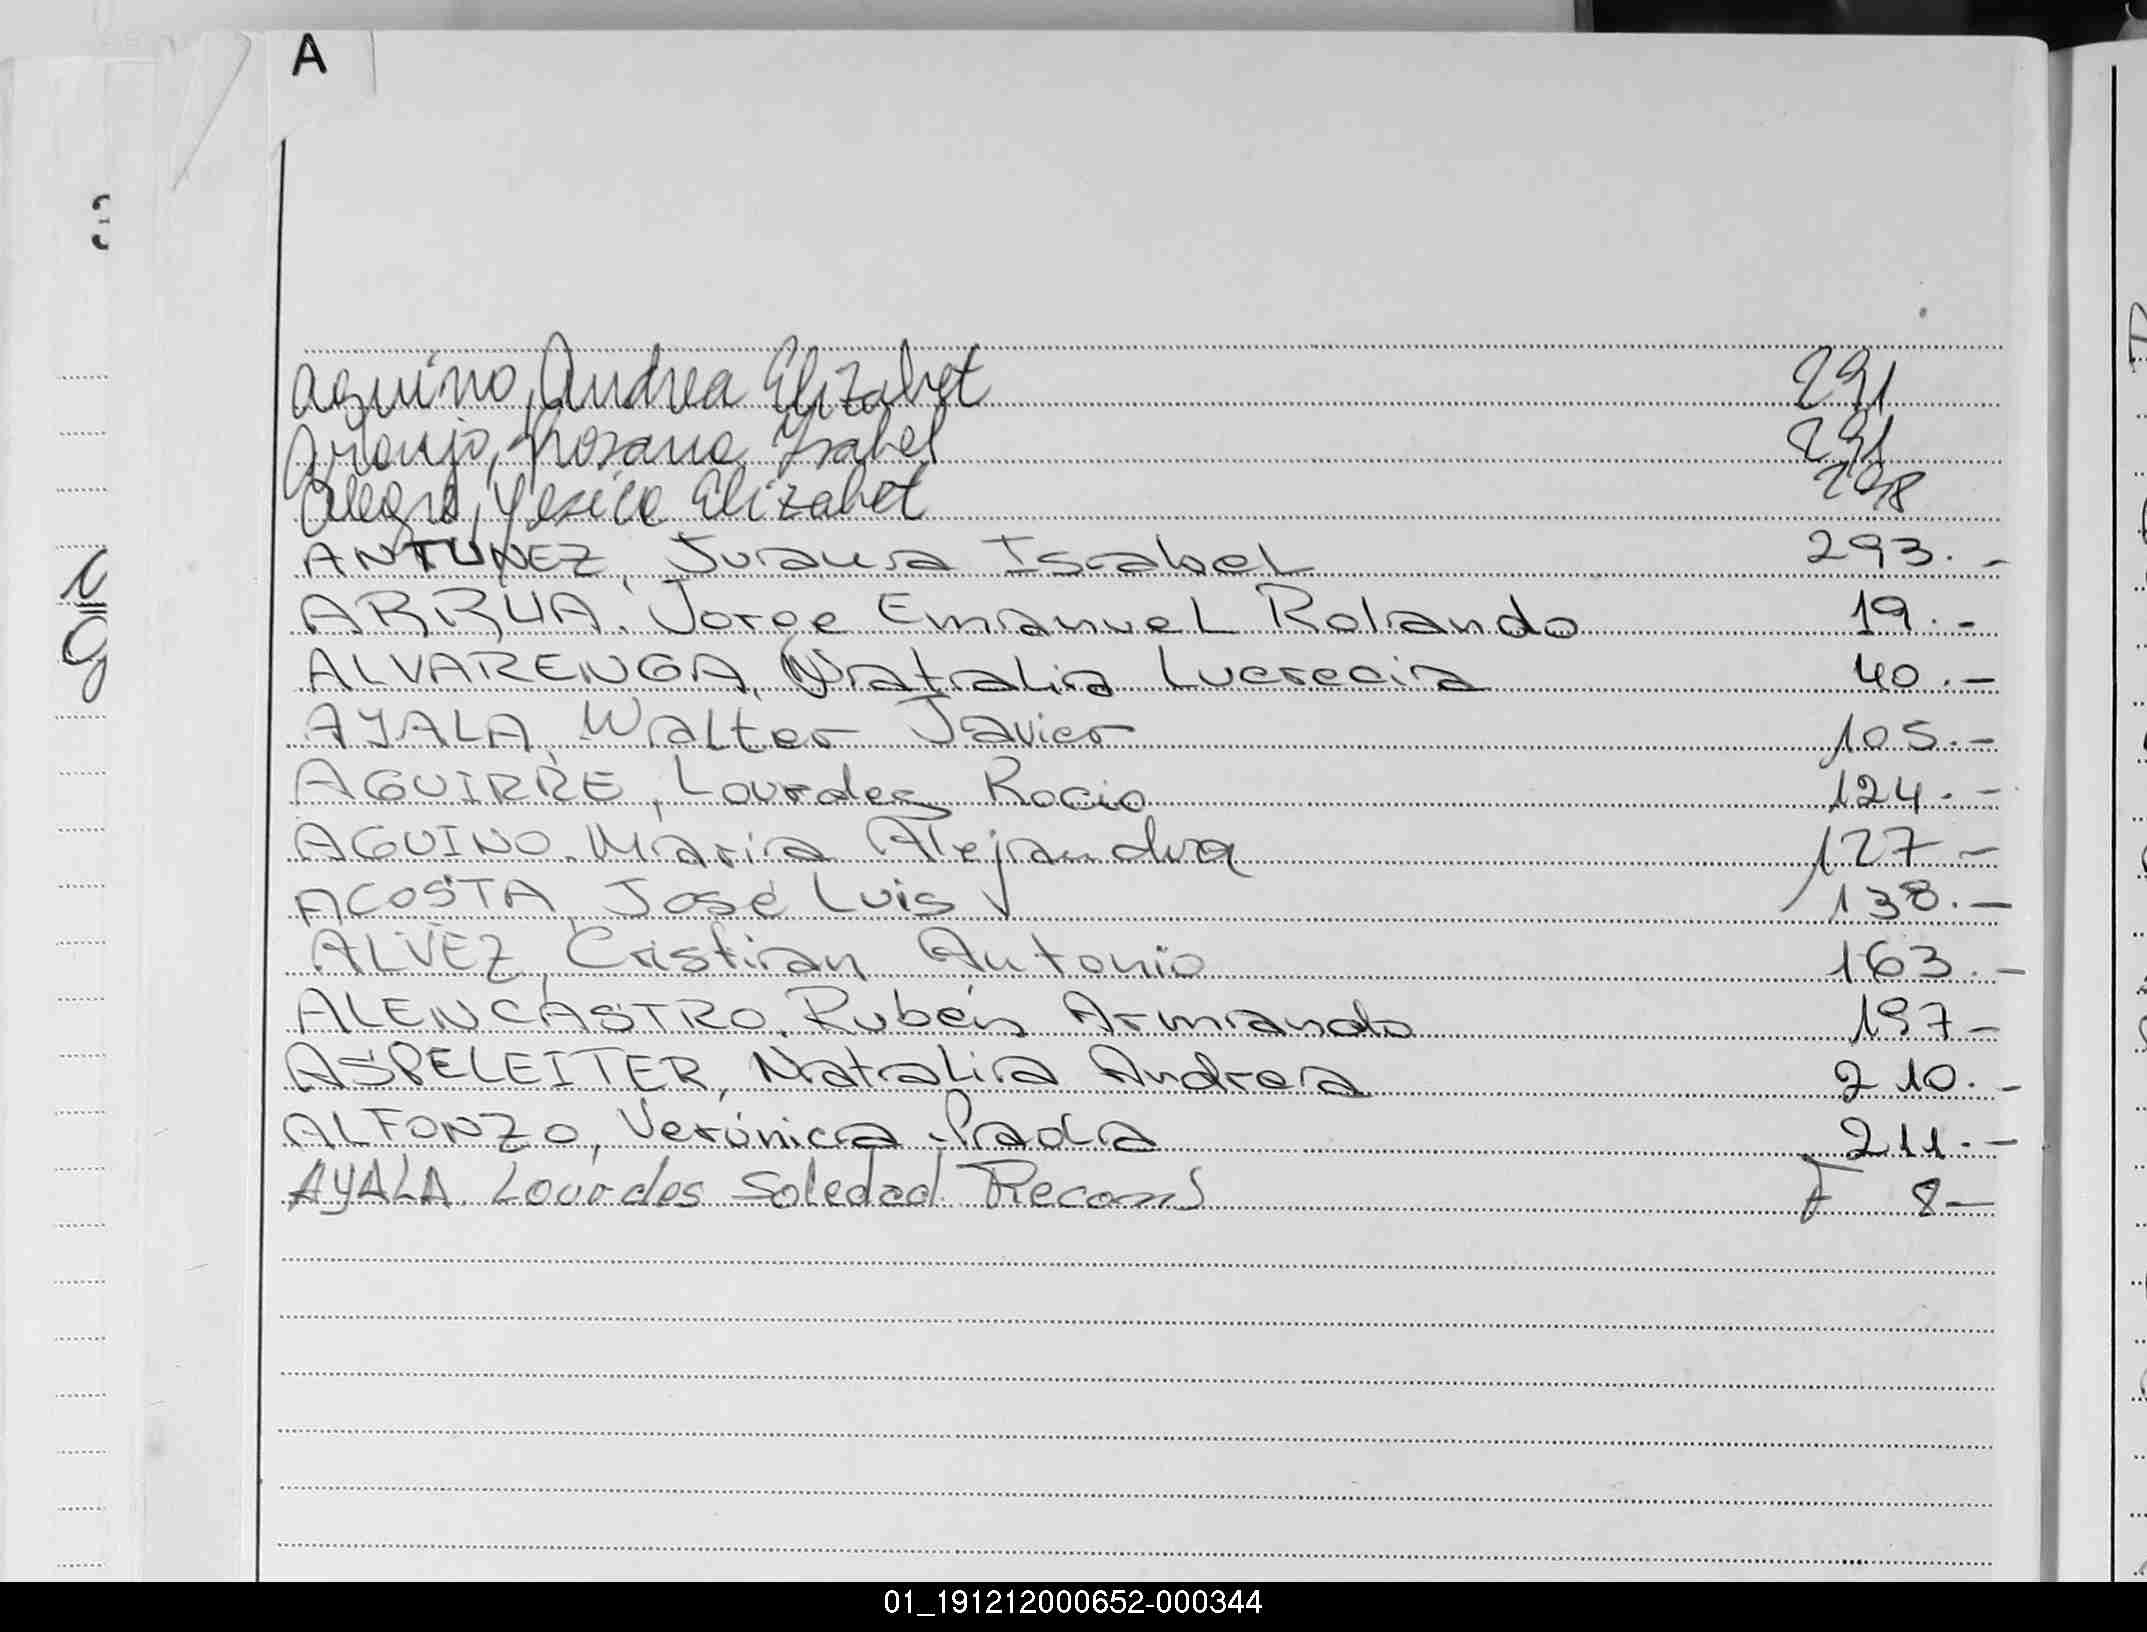 A
Aquino, Andrea Elizabet 291
Araujo, Rosana Ysabel 291
Alegre, Yesica Elizabet 298
ANTUNEZ, Juana Isabel 293.-
ARRUA, Jorge Emanuel Rolando 19.-
ALVARENGA, Natalia Lucrecia 40.-
AYALA, Walter Javier 105.-
AGUIRRE, Lourdes Rocio 124.-
AQUINO, Maria Alejandra 127-
ACOSTA, José Luis 138.-
ALVEZ, Cristian Antonio 163.-
ALENCASTRO, Rubén Armando 197-
ASPELEITER, Natalia Andrea 210.-
ALFONZO, Verónica Paola 211.-
AYALA Lourdes Soledad F 8-
01_191212000652-000344